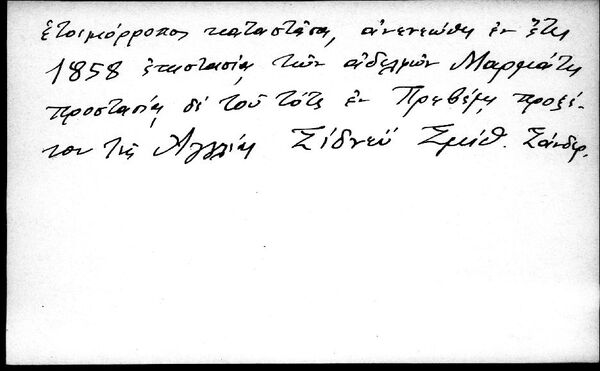 ἑτοιμόρροπος καταστᾶσα, ἀνενεώθη ἐν ἔτει
1858 ἐπιστασίᾳ τῶν ἀδελφῶν Μαρμάτη
προστασίᾳ δὲ τοῦ τότε ἐν Πρεβέζῃ προξέ-
νου τῆς Ἀγγλίας Σίδνεϋ Σμίθ. Σάνδερ.